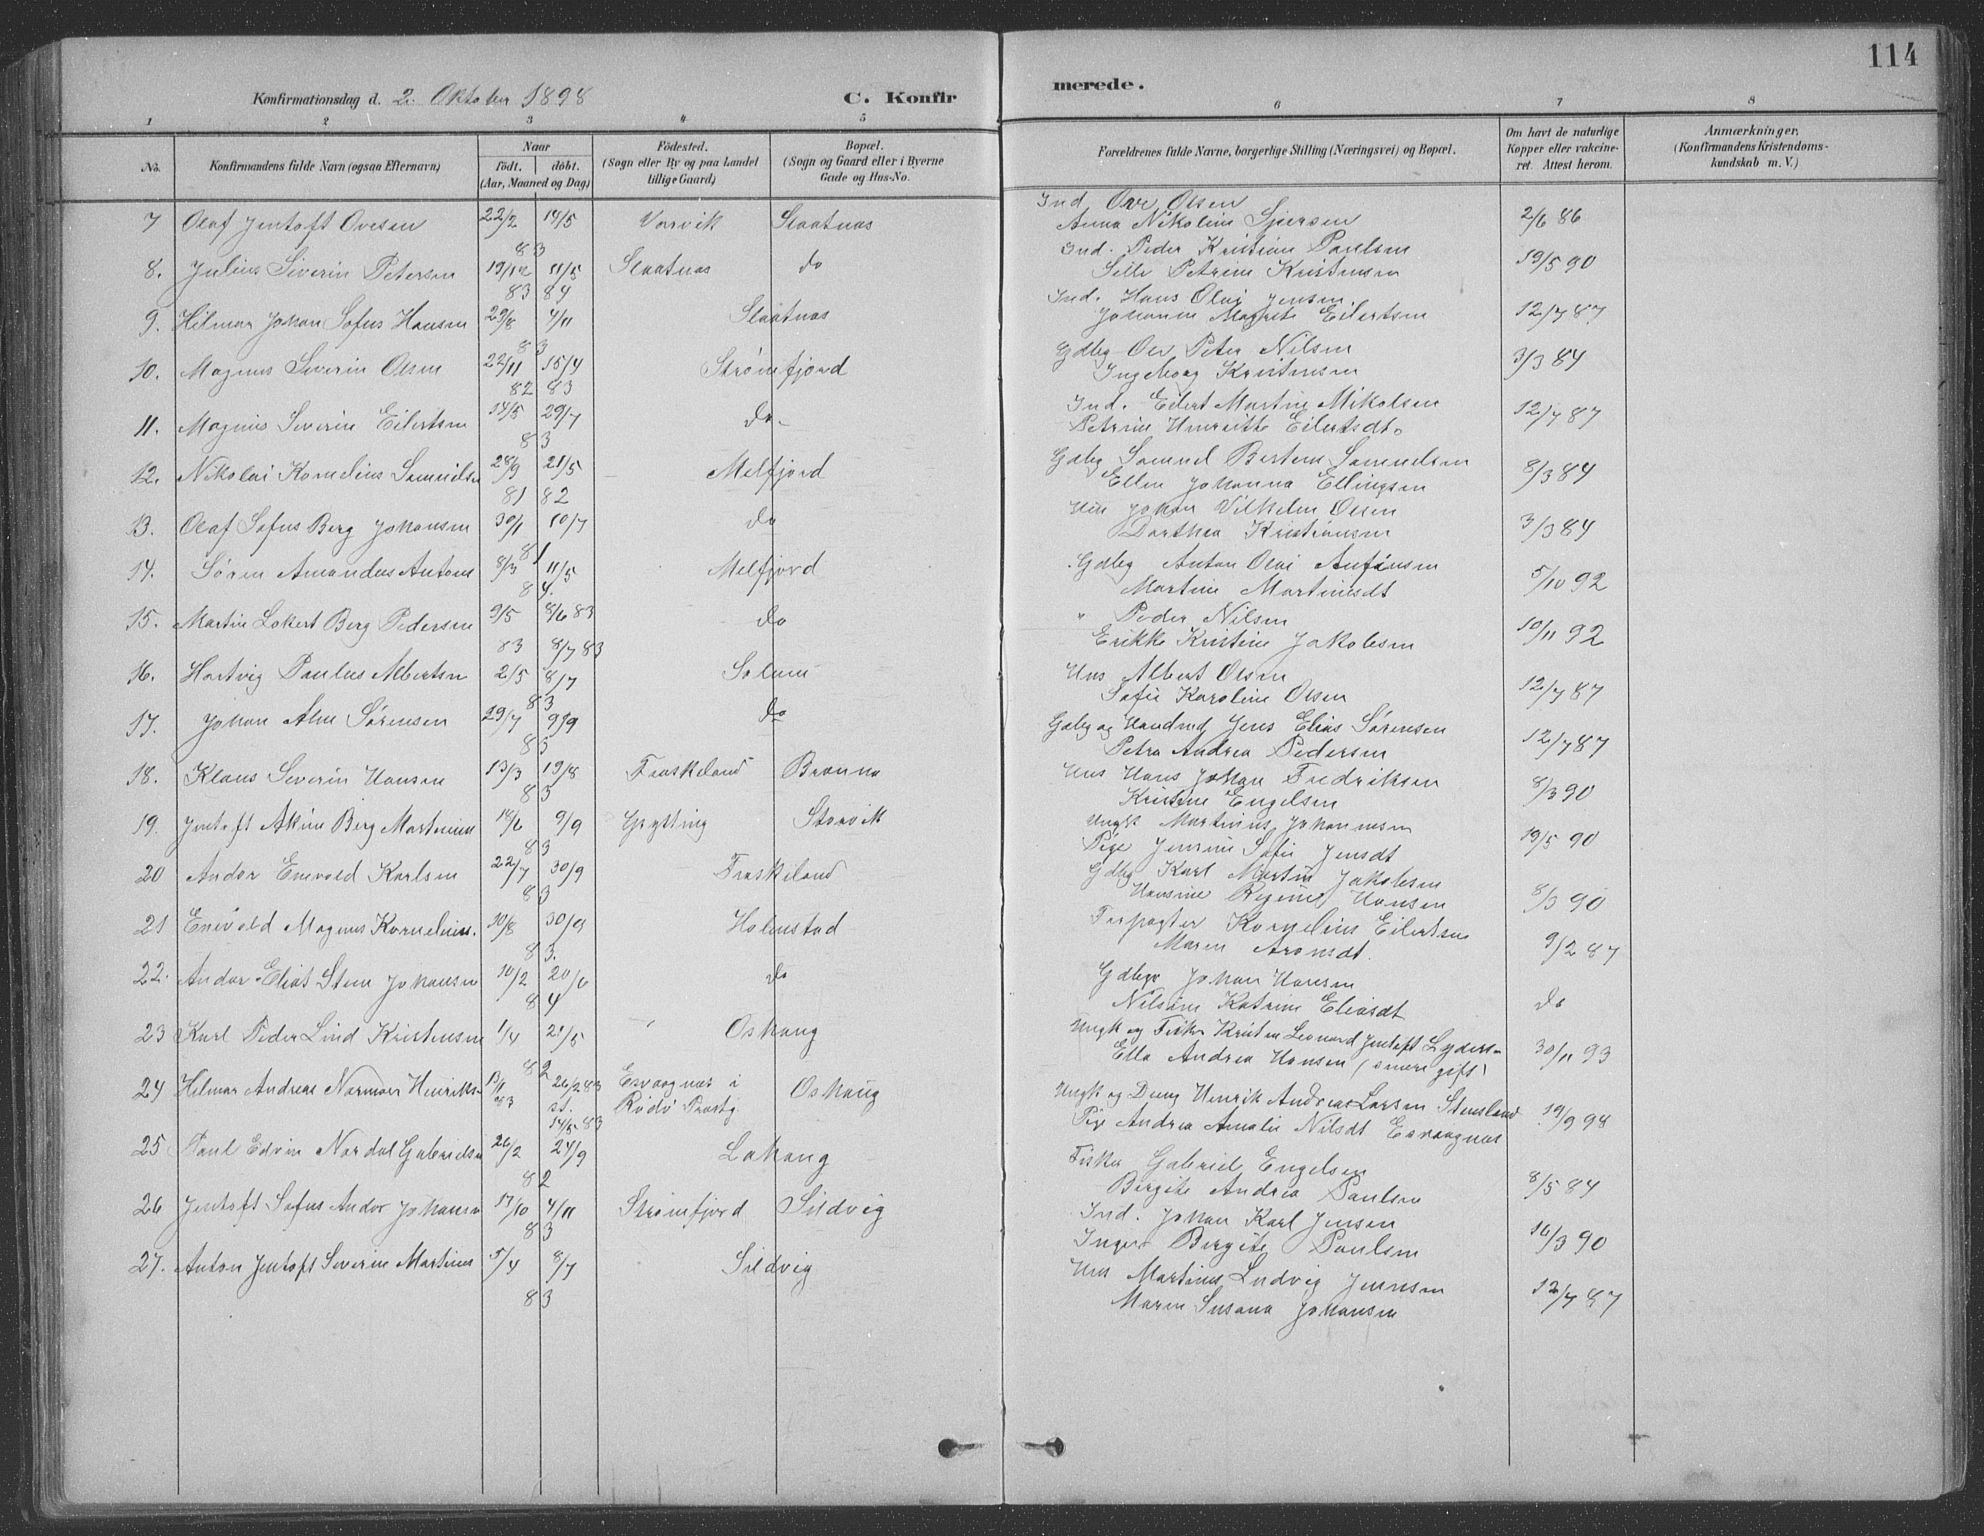 114
Konfirmationsdag d. 2. Oktober 1898 C. Konfirmerede.
1 2 3 4 5 6 7 8
No. Konfirmandens fulde Navn (ogsaa Efternavn) Naar født. døbt. (Aar, Maaned og Dag) Fødested. (Sogn eller By og paa Landet tillige Gaard) Bopæl. (Sogn og Gaard eller i Byerne Gade og Hus-No. Forældrenes fulde Navne, borgerlige Stilling (Næringsvei) og Bopæl. Om havt de naturlige Kopper eller vakcineret. Attest herom. Anmærkninger. (Konfirmandens Kristendomskundskab m. V.)
7 Olaf Jentoft Ovesen 22/2 14/5 83 Vorvik Slaatnas Ind. Ove Olsen 2/6 86
Anna Nikoline Sjursen
8. Julius Siverin Petersen 19/12 83 11/5 84 Slaatnas do Ind. Peder Kristian Paulsen 19/5 90
Sille Petrine Kristensen
9. Hilmar Johan Sofus Hansen 29/8 4/11 83 Slaatnas Ind. Hans Olai Jensen 12/7 87
Johanna Magrete Eilertsen
10. Magnus Severin Olsen 22/11 82 15/4 83 Strømfjord Gdbg Ove Peter Nilsen 3/3 84
Ingeborg Kristensen
11. Magnus Severin Eilertsen 14/5 29/7 83 do. Ind. Eilert Martin Mikalsen 12/7 87
Petrine Henriette Eilertsdt.
12. Nikolai Kornelius Samuelsen 28/9 81 21/5 82 Melfjord Gdbg Samuel Bertem Samuelsen 8/3 84
Ellen Johanna Ellingsen
13. Olaf Sofus Berg Johansen 30/1 10/7 81 do Hus Johan Vilhelm Olsen 3/3 84
Dorthea Kristiansen
14. Søren Amandus Antons 8/3 11/5 84. Melfjord Gdbg Anton Olai Anfinsen 5/10 92
Martine Martinusdt
15. Martin Lokert Berg Pedersen 9/5 83 8/6 83 8/7 83 do " Peder Nilsen 10/11 92
Erikke Kristine Jakobsen
16. Hartvig Paulus Albertsen 2/5 8/7 83 Solum Hus Albert Olsen 12/7 87
Sofie Karoline Olsen
17. Johan Alm Sørensen 29/7 9/9 83 do Gdbg og Handmd Jens Elias Sørensen 12/7 87
Petra Andrea Pedersen
18. Klaus Severin Hansen 13/3 19/8 83 Fraskeland Brænna Hus Hans Johan Fredriksen 8/3 90
Kristine Engelsen
19. Jentoft Akim Berg Martinus 18/6 9/9 83 Grytting Storvik Ungk Martinus Johannesen 19/5 90
Pige Jensine Sofie Jensdt
20 Andor Enevold Karlsen 22/7 30/9 83 Fraskeland Gdbg Karl Martin Jakobsen 8/3 90
Hansine Regine Hansen
21 Enevold Magnus Kornelius. 10/8 30/9 83. Holmstad Forpagter Kornelius Eilertsen 9/2 87
Maren Aronsdt.
22. Andor Elias Sten Johansen 10/2 20/6 84 do Gdbgr Johan Hansen do
Nilsine Katrine Eliasdt
23 Karl Peder Lind Kristensen 1/4 21/5 82 Oshaug Ungk og Fisker Kristen Leonard Jentoft Lyders. 30/11 93
Ella Andrea Hansen (senere gift)
24 Hilmar Andreas Norman Henriks. 13/11 83 26/2 83 st. 14/5 83 Esvaagnæs i Rødø Præstg. Oshaug Ungk og Dreng Henrik Andreas Larsen Stensland 19/9 98
Pige Andrea Amalie Nilsdt Esvaagnæs
25 Paul Edvin Nordal Gabrielsen 26/2 24/9 82 Lahaug Fisker Gabriel Engelsen 8/5 84
Bergite Andrea Paulsen
26 Jentoft Sofus Andor Johansen 17/10 4/11 83 Strømfjord Sildvig Ind. Johan Karl Jensen 16/3 90
Inger Birgite Paulsen
27. Anton Jentoft Severin Martinus 5/4 8/7 83 Sildvig Hus Martinus Ludvig Jensen 12/7 87
Maren Susana Johansen